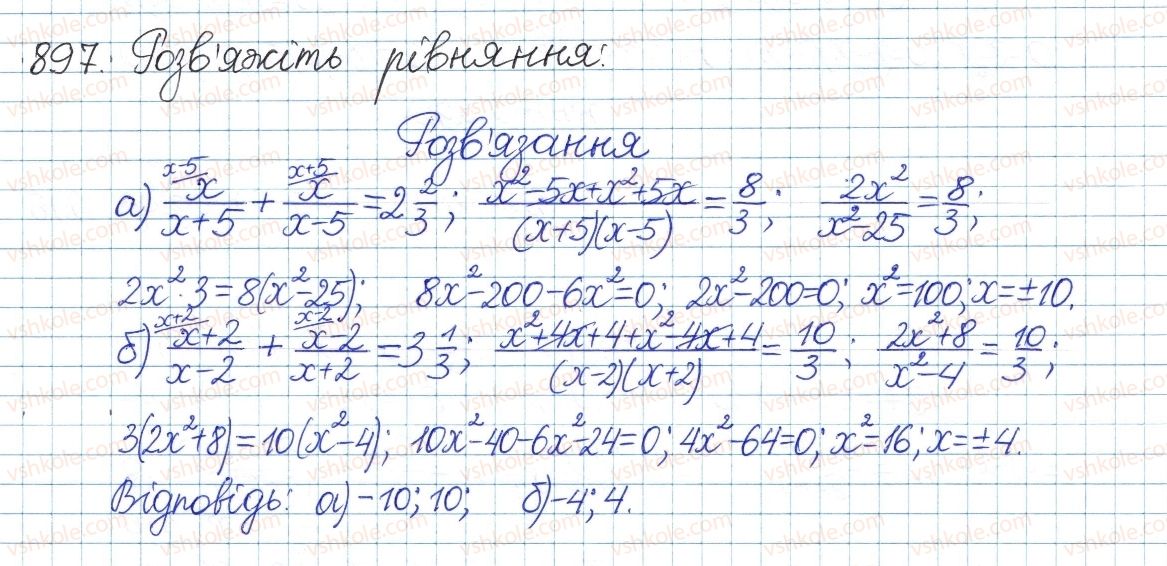 897. Розв'яжіть рівняння:
Розв'язання
а) ˣ⁻⁵⁄ x/(x+5) + ˣ⁺⁵⁄ x/(x-5) = 2 2/3; (x²-5x+x²+5x)/((x+5)(x-5)) = 8/3; 2x²/(x²-25) = 8/3;
2x²·3=8(x²-25); 8x²-200-6x²=0; 2x²-200=0; x²=100; x=±10.
б) ˣ⁺²⁄ (x+2)/(x-2) + ˣ⁻²⁄ (x-2)/(x+2) = 3 1/3; (x²+4x+4+x²-4x+4)/((x-2)(x+2)) = 10/3; (2x²+8)/(x²-4) = 10/3;
3(2x²+8)=10(x²-4); 10x²-40-6x²-24=0; 4x²-64=0; x²=16; x=±4.
Відповідь: а) -10; 10; б) -4; 4.